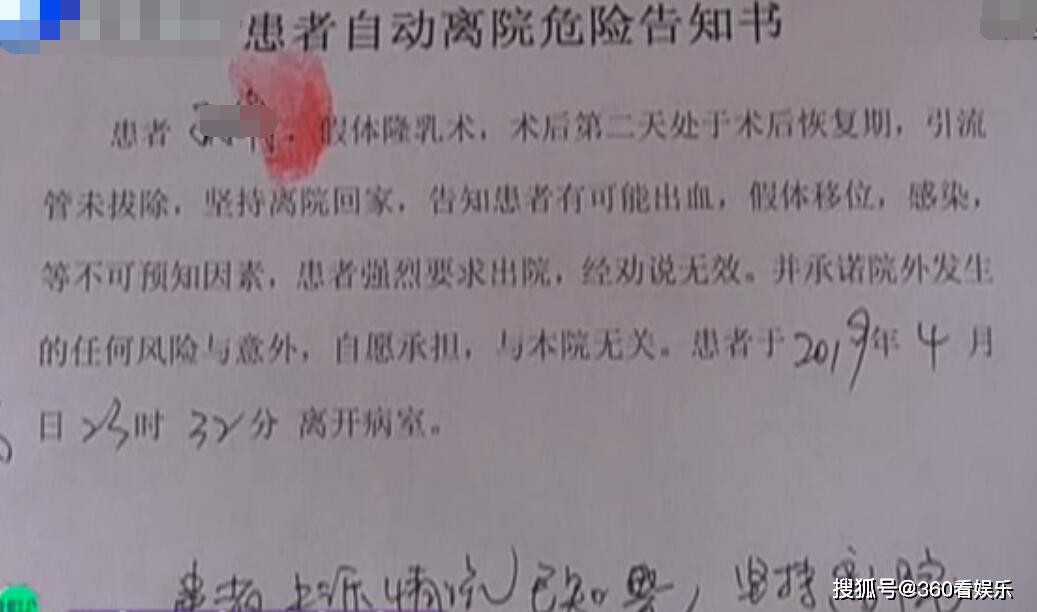 患者自动离院危险告知书
患者 假体隆乳术，术后第二天处于术后恢复期，引流
管未拔除，坚持离院回家，告知患者有可能出血，假体移位，感染，
等不可预知因素，患者强烈要求出院，经劝说无效。并承诺院外发生
的任何风险与意外，自愿承担，与本院无关。患者于2019年 4 月
日 23时 32分 离开病室。
患者 上派情况已知晓，坚持离院
搜狐号@360看娱乐